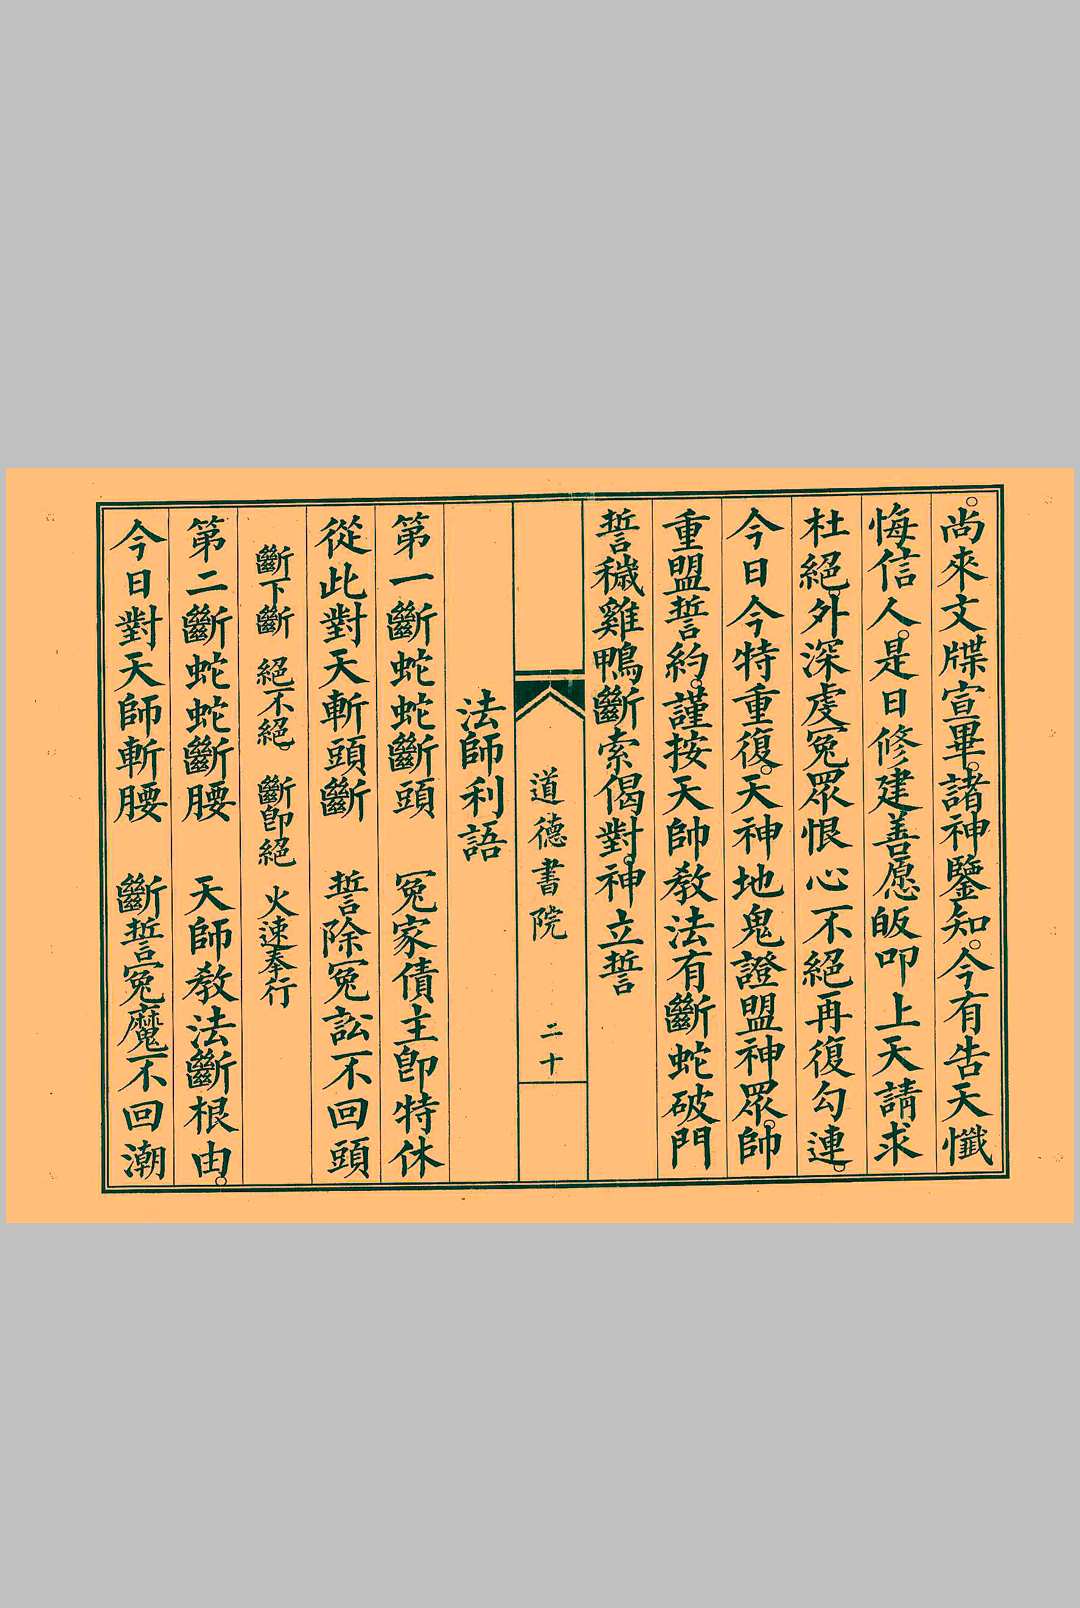 尚來文牒宣畢。諸神鑒知。今有告天懺
悔信人。是日修建善愿皈叩上天請求
杜絕。外深虔冤眾恨心不絕再復勾連。
今日今特重復。天神地鬼證盟神眾。帥
重盟誓約。謹按天帥教法有斷蛇破門
誓穢雞鴨斷索偈對。神立誓
道德書院
二十
法師利語
第一斷蛇蛇斷頭　冤家債主即特休
從此對天斬頭斷　誓除冤訟不回頭
斷下斷　絕不絕。　斷即絕　火速奉行
第二斷蛇蛇斷腰　天師教法斷根由。
今日對天師斬腰　斷誓冤魔不回潮